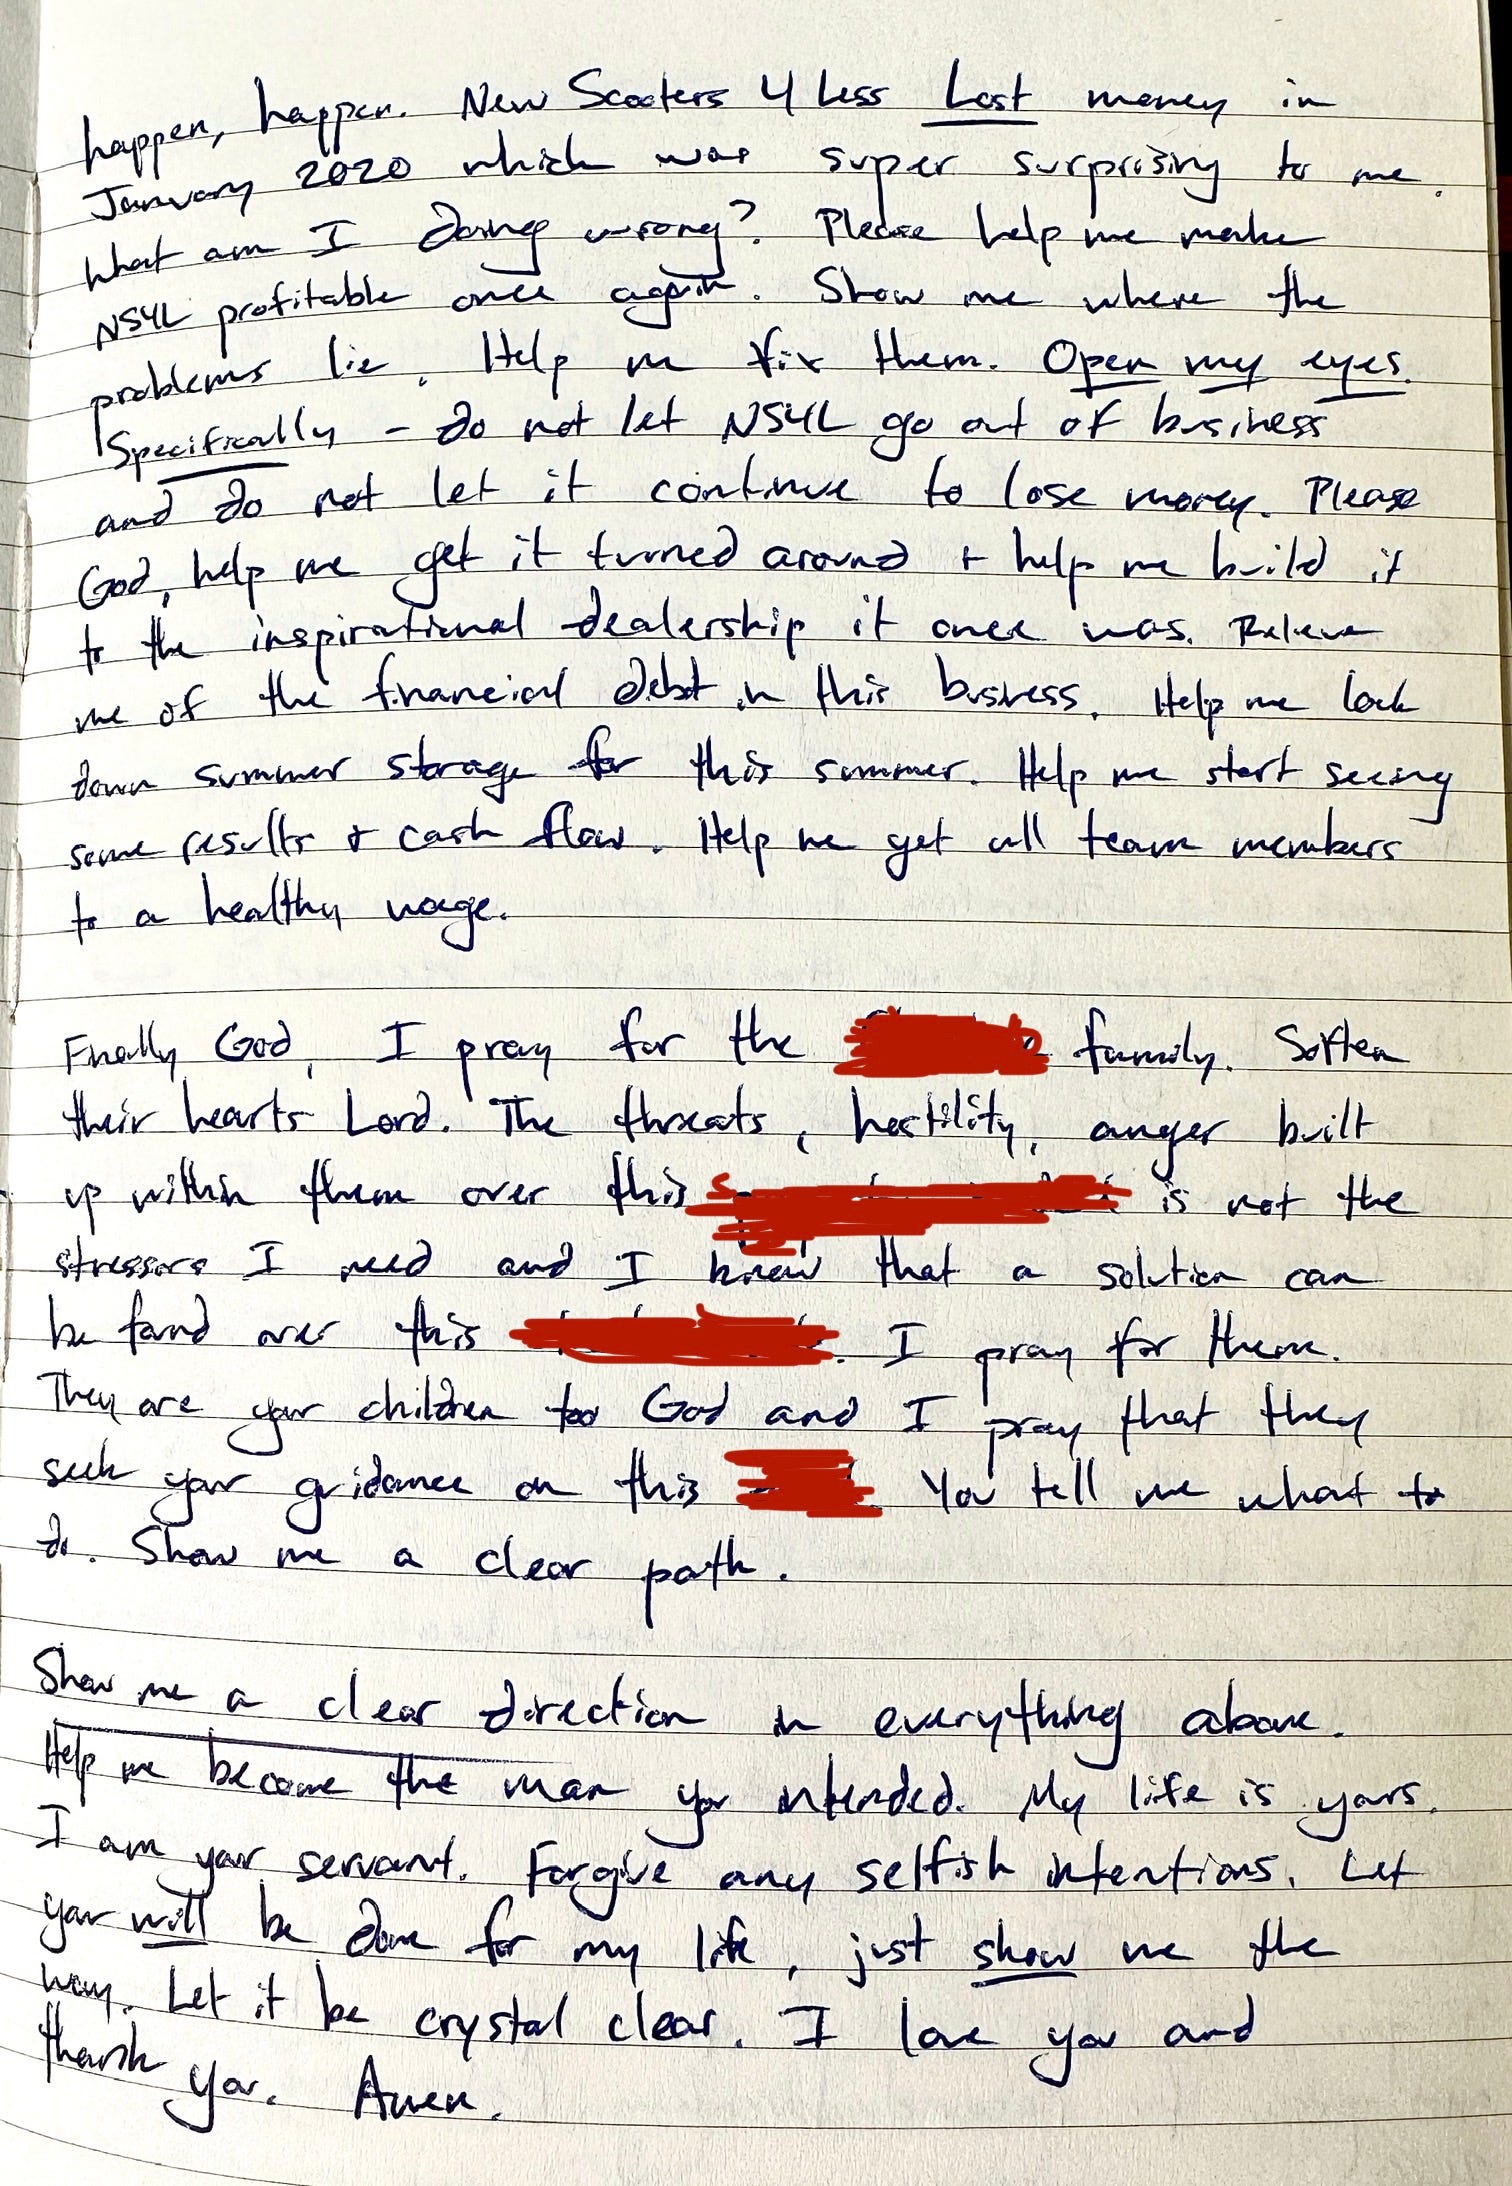 happen, happen. New Scooters 4 Less Lost money in
January 2020 which was super surprising to me.
What am I doing wrong? Please help me make
NS4L profitable once again. Show me where the
problems lie. Help me fix them. Open my eyes.
Specifically - do not let NS4L go out of business
and do not let it continue to lose money. Please
God, help me get it turned around + help me build it
to the inspirational dealership it once was. Relieve
me of the financial debt in this business. Help me lock
down summer storage for this summer. Help me start seeing
some results + cash flow. Help me get all team members
to a healthy wage.
Finally God, I pray for the family. Soften
their hearts Lord. The threats, hostility, anger built
up within them over this is not the
stressors I need and I know that a solution can
be found over this . I pray for them.
They are your children too God and I pray that they
seek your guidance on this You tell me what to
do. Show me a clear path.
Show me a clear direction in everything above.
Help me become the man you intended. My life is yours.
I am your servant. Forgive any selfish intentions. Let
your will be done for my life, just show me the
way. Let it be crystal clear. I love you and
thank you. Amen.